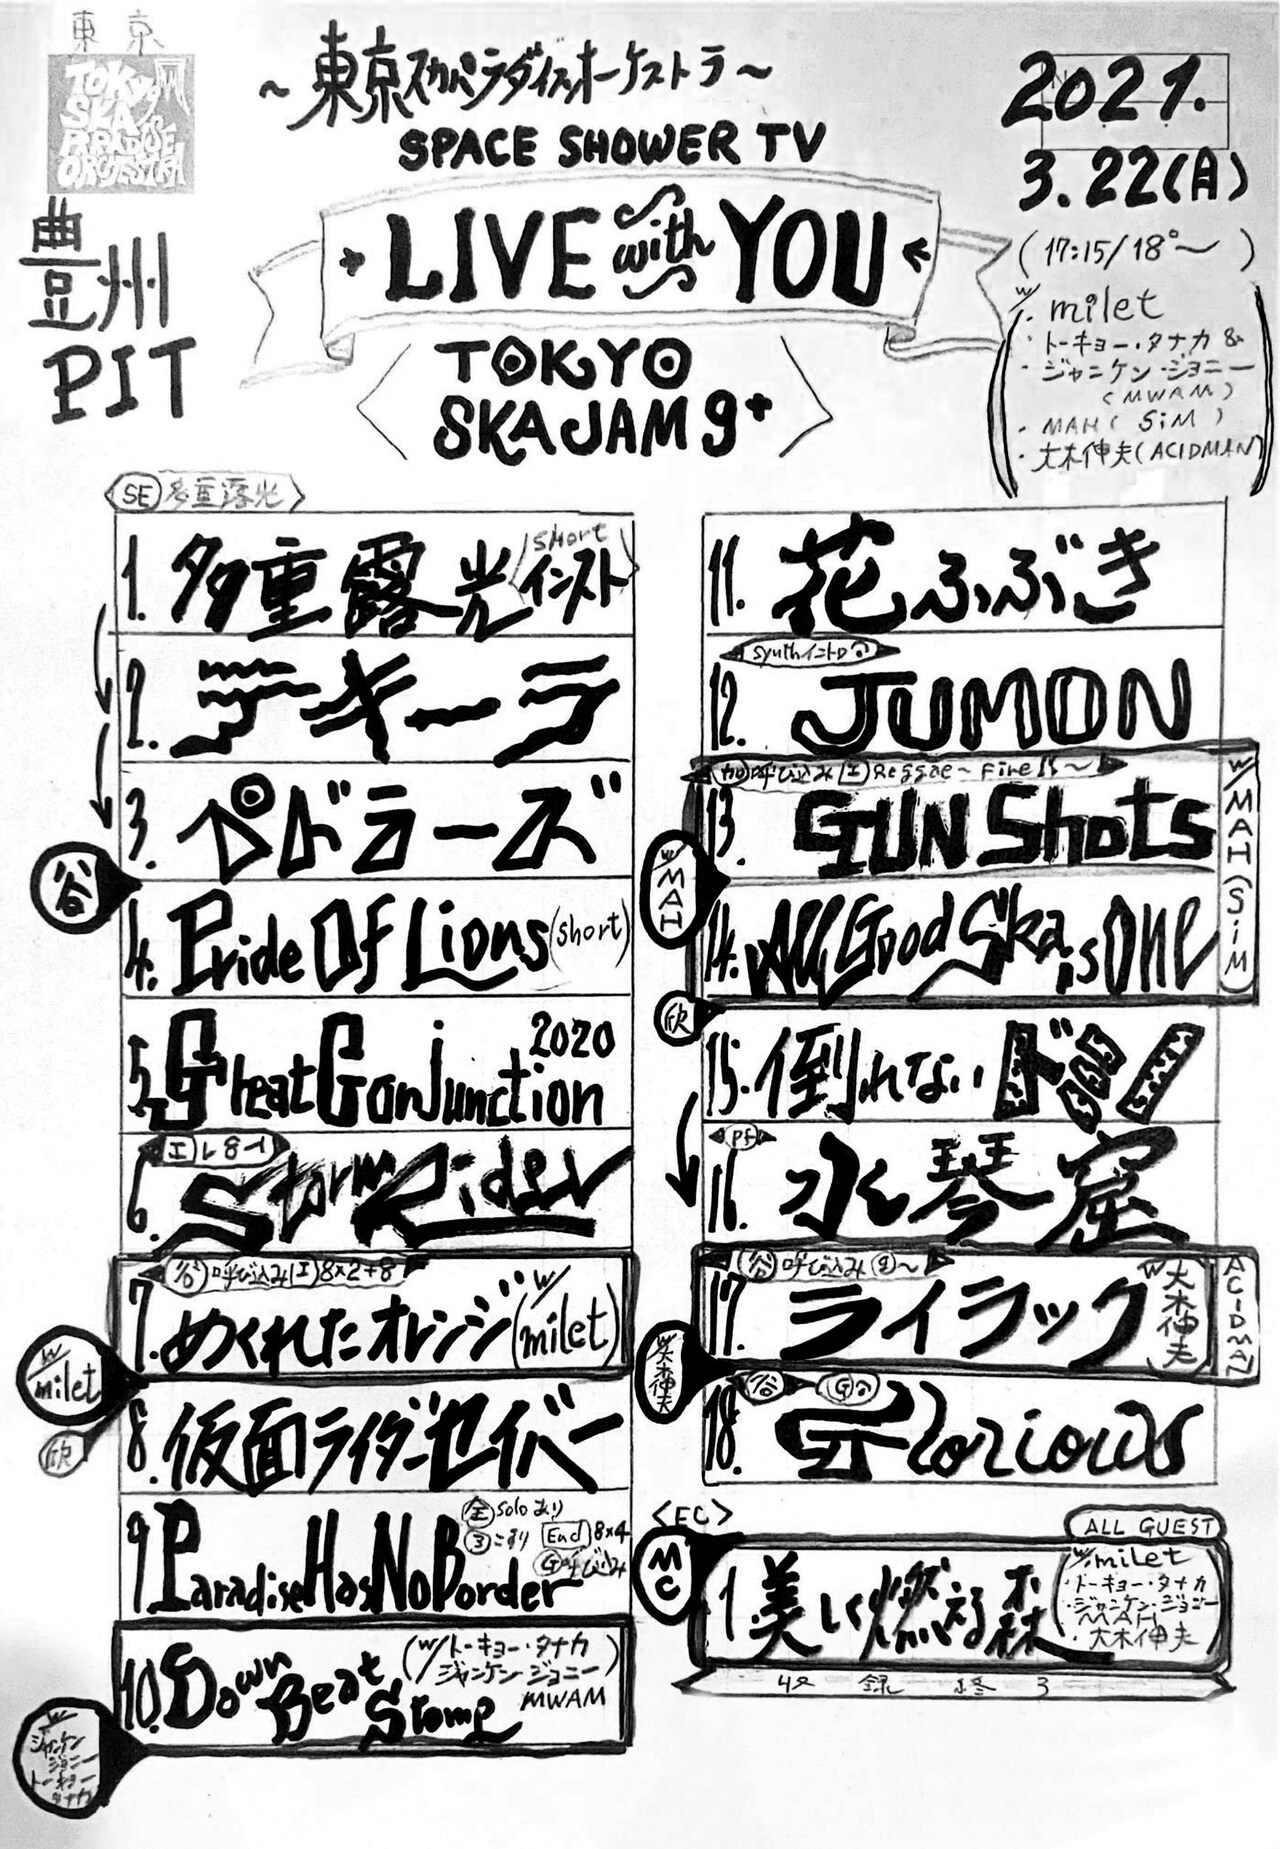 東京
TOKYO
SKA
PARADISE
ORCHESTRA
豊洲
PIT
～東京スカパラダイスオーケストラ～
SPACE SHOWER TV
LIVE with YOU
TOKYO
SKA JAM 9+
2021.
3.22(月)
(17:15/18°～)
w/ milet
・トーキョー・タナカ &
・ジャンケン・ジョニー
(MWAM)
・MAH(SiM)
・大木伸夫(ACIDMAN)
SE 多重露光
1. 多重露光 short インスト
2. テキーラ
3. ペドラーズ
谷
4. Pride Of Lions (short)
5. Great Conjunction 2020
6. Storm Rider
谷 呼び込み(エ)8×2+8
7. めくれたオレンジ (w/ milet)
w/ milet
欣
8. 仮面ライダーセイバー
9. Paradise Has No Border
全 soloあり
End 8×4
G呼び込み
10. Down Beat Stomp (w/トーキョー・タナカ
ジャンケン・ジョニー)
MWAM
w/
ジャンケン
ジョニー
トーキョー
タナカ
11. 花ふぶき
synthイントロ
12. JUMON
加 呼び込み(エ)Reggae～Fire!!～
13. GUN Shots
w/MAH(SiM)
w/MAH
14. All Good Ska is One
欣
15. 倒れないドミノ
pf
16. 水琴窟
谷 呼び込み
17. ライラック w/大木伸夫
ACIDMAN
w/大木伸夫
谷
18. Glorious
<EC>
MC
ALL GUEST
1. 美しく燃える森
w/milet
・トーキョー・タナカ
・ジャンケン・ジョニー
・MAH
・大木伸夫
収録終了